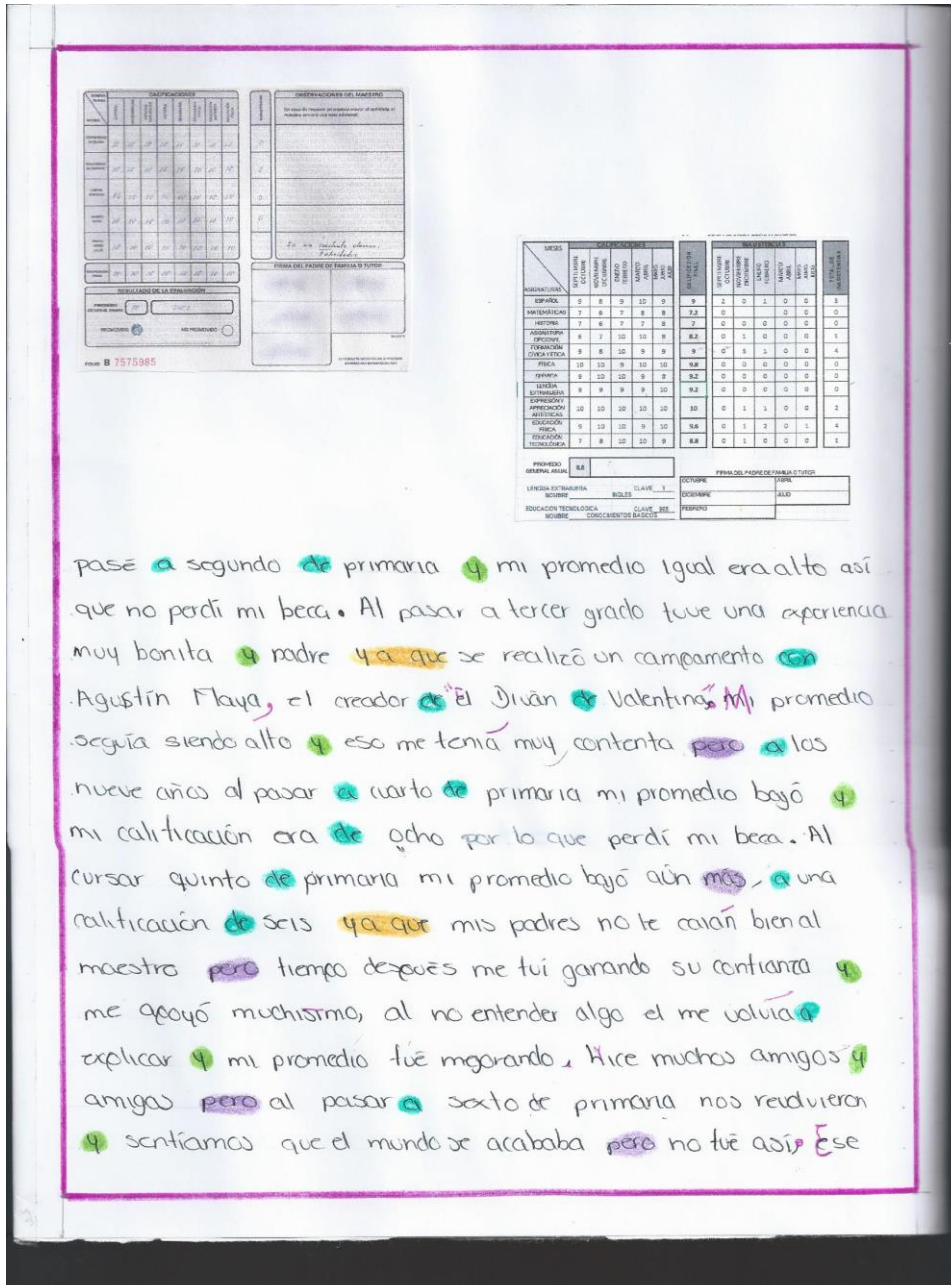 CALIFICACIONES
OBSERVACIONES DEL MAESTRO
FIRMA DEL PADRE DE FAMILIA O TUTOR
RESULTADO DE LA EVALUACIÓN
PROMOVIDO
NO PROMOVIDO
FOLIO B 7575985
MESES CALIFICACIONES INASISTENCIAS
ASIGNATURAS SEPTIEMBRE OCTUBRE NOVIEMBRE DICIEMBRE ENERO FEBRERO MARZO ABRIL MAYO JUNIO JULIO
ESPAÑOL 9 8 9 10 9 9 2 0 1 0 0 3
MATEMÁTICAS 7 6 7 8 8 7.2 0 0 0 0
HISTORIA 7 6 7 7 8 7 0 0 0 0 0 0
ASIGNATURA OPCIONAL 6 7 10 10 8 8.2 0 1 0 0 0 1
FORMACIÓN CÍVICA Y ÉTICA 9 8 10 9 9 9 0 3 1 0 0 4
FÍSICA 10 10 9 10 10 9.8 0 0 0 0 0 0
9 10 10 9 8 9.2 0 0 0 0 0 0
LENGUA EXTRANJERA 9 9 9 9 10 9.2 0 0 0 0 0 0
EXPRESIÓN Y APRECIACIÓN ARTÍSTICAS 10 10 10 10 10 10 0 1 1 0 0 2
EDUCACIÓN FÍSICA 9 10 10 9 10 9.6 0 1 2 0 1 4
EDUCACIÓN TECNOLÓGICA 7 8 10 10 9 8.8 0 1 0 0 0 1
PROMEDIO GENERAL ANUAL 8.8
FIRMA DEL PADRE DE FAMILIA O TUTOR
OCTUBRE ABRIL
DICIEMBRE JULIO
FEBRERO
LENGUA EXTRANJERA CLAVE 1
NOMBRE INGLES
EDUCACIÓN TECNOLÓGICA CLAVE
NOMBRE CONOCIMIENTOS BASICOS
pasé a segundo de primaria y mi promedio igual era alto así
que no perdí mi beca. Al pasar a tercer grado tuve una experiencia
muy bonita y padre ya que se realizó un campamento con
Agustín Maya, el creador de "El Diván de Valentina". Mi promedio
seguía siendo alto y eso me tenía muy contenta pero a los
nueve años al pasar a cuarto de primaria mi promedio bajó y
mi calificación era de ocho por lo que perdí mi beca. Al
cursar quinto de primaria mi promedio bajó aún más, a una
calificación de seis ya que mis padres no le caían bien al
maestro pero tiempo después me fui ganando su confianza y
me apoyó muchísimo, al no entender algo el me volvía a
explicar y mi promedio fué mejorando. Hice muchos amigos y
amigas pero al pasar a sexto de primaria nos revolvieron
y sentíamos que el mundo se acababa pero no fué así, Ese